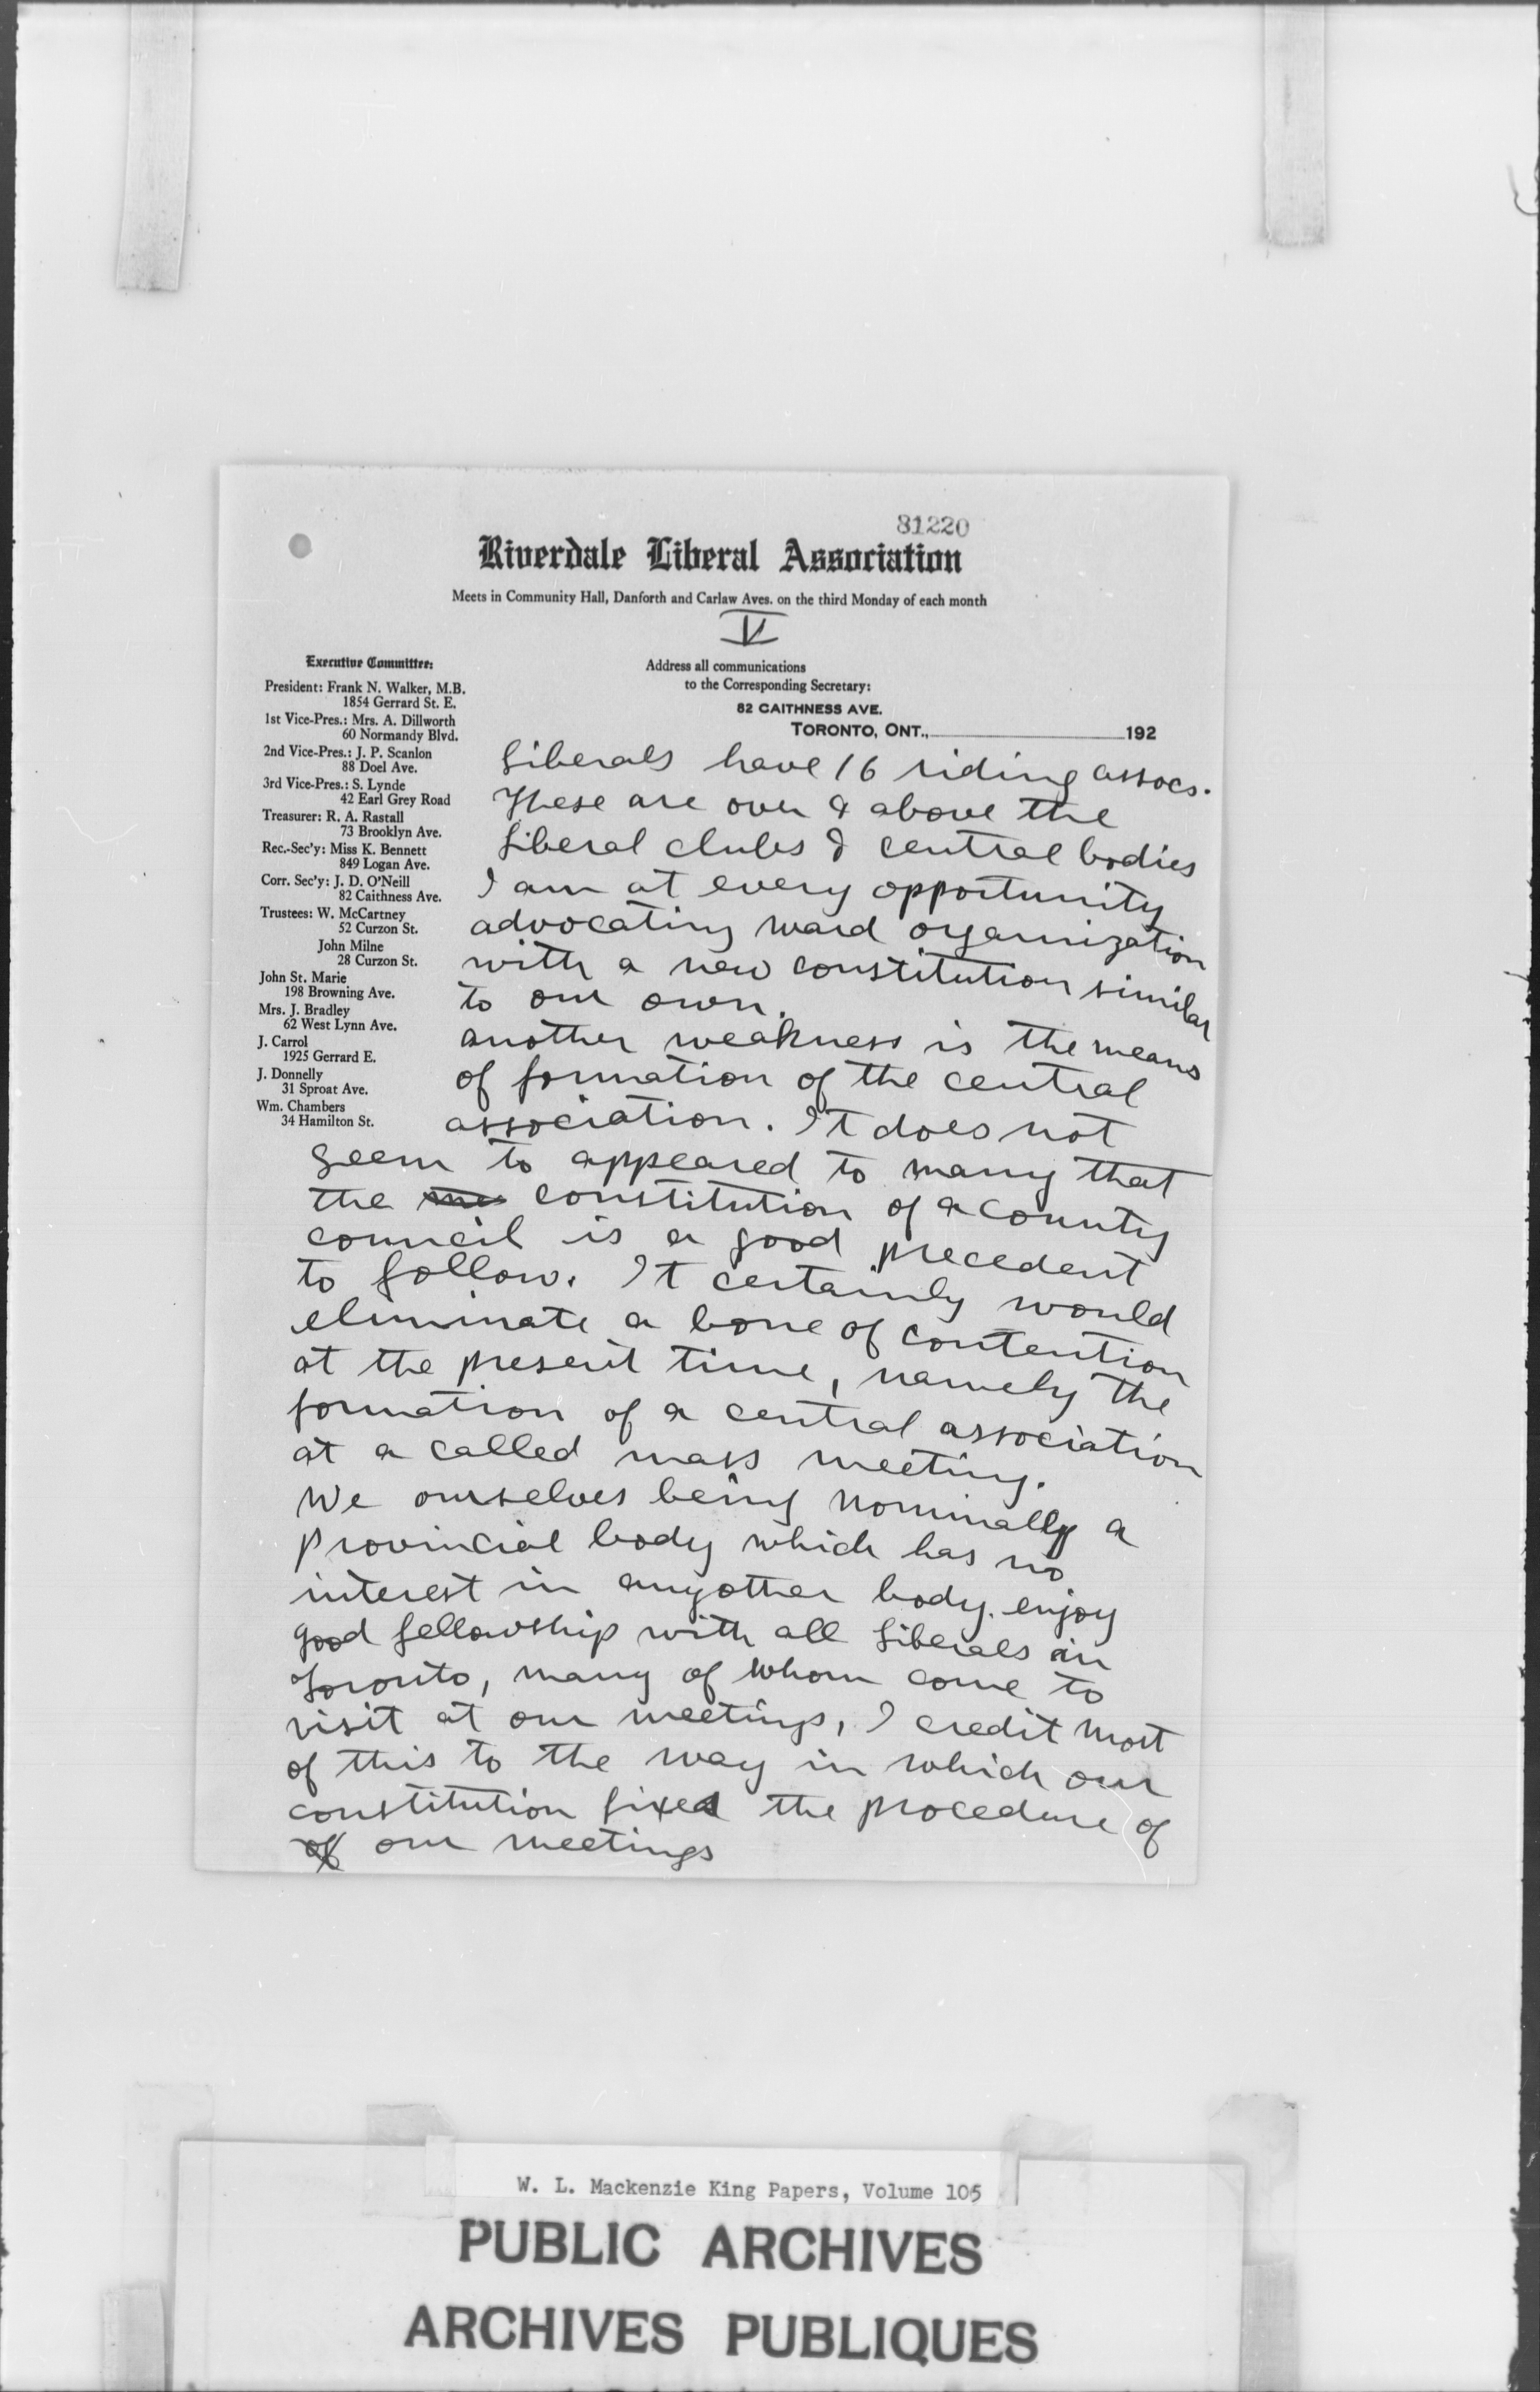 81220
Riverdale Liberal Association
Meets in Community Hall, Danforth and Carlaw Aves. on the third Monday of each month
V
Executive Committee:
President: Frank N. Walker, M.B.
1854 Gerrard St. E.
1st Vice-Pres.: Mrs. A. Dillworth
60 Normandy Blvd.
2nd Vice-Pres.: J. P. Scanlon
88 Doel Ave.
3rd Vice-Pres.: S. Lynde
42 Earl Grey Road
Treasurer: R. A. Rastall
73 Brooklyn Ave.
Rec.-Sec'y: Miss K. Bennett
849 Logan Ave.
Corr. Sec'y: J. D. O'Neill
82 Caithness Ave.
Trustees: W. McCartney
52 Curzon St.
John Milne
28 Curzon St.
John St. Marie
198 Browning Ave.
Mrs. J. Bradley
62 West Lynn Ave.
J. Carrol
1925 Gerrard E.
J. Donnelly
31 Sproat Ave.
Wm. Chambers
34 Hamilton St.
Address all communications
to the Corresponding Secretary:
82 CAITHNESS AVE.
TORONTO, ONT., 192
Liberals have 16 riding assocs.
These are over & above the
Liberal clubs & central bodies
I am at every opportunity
advocating ward organization
with a new constitution similar
to our own.
Another weakness is the means
of formation of the central
association. It does not
seem to appeared to many that
the constitution of a county
council is a good precedent
to follow. It certainly would
eliminate a bone of contention
at the present time, namely the
formation of a central association
at a called mass meeting.
We ourselves being nominally a
provincial body which has no
interest in anyother body. enjoy
good fellowship with all Liberals in
Toronto, many of whom come to
visit at our meetings, I credit most
of this to the way in which our
constitution fixed the procedure of
of our meetings
W. L. Mackenzie King Papers, Volume 105
PUBLIC ARCHIVES
ARCHIVES PUBLIQUES